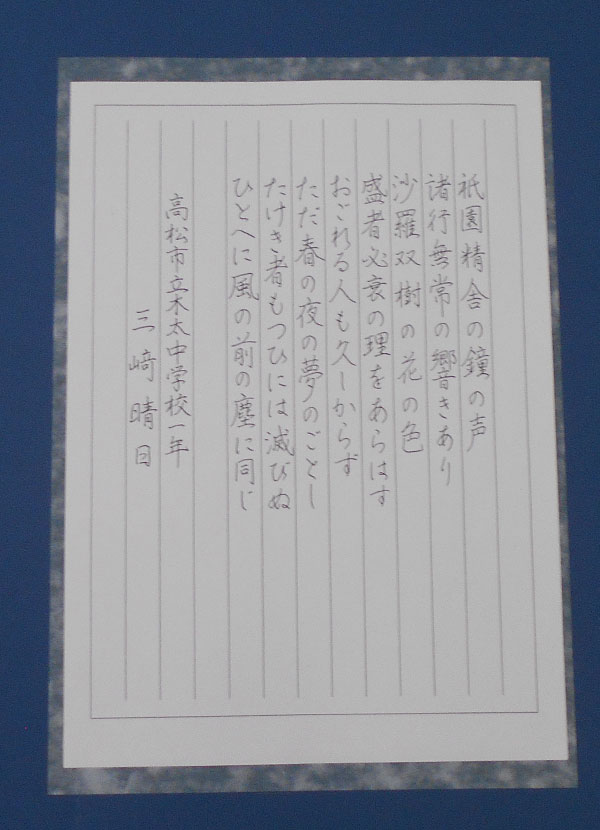 祇園精舎の鐘の声
諸行無常の響きあり
沙羅双樹の花の色
盛者必衰の理をあらはす
おごれる人も久しからず
ただ春の夜の夢のごとし
たけき者もつひには滅びぬ
ひとへに風の前の塵に同じ
高松市立木太中学校一年
三﨑晴日